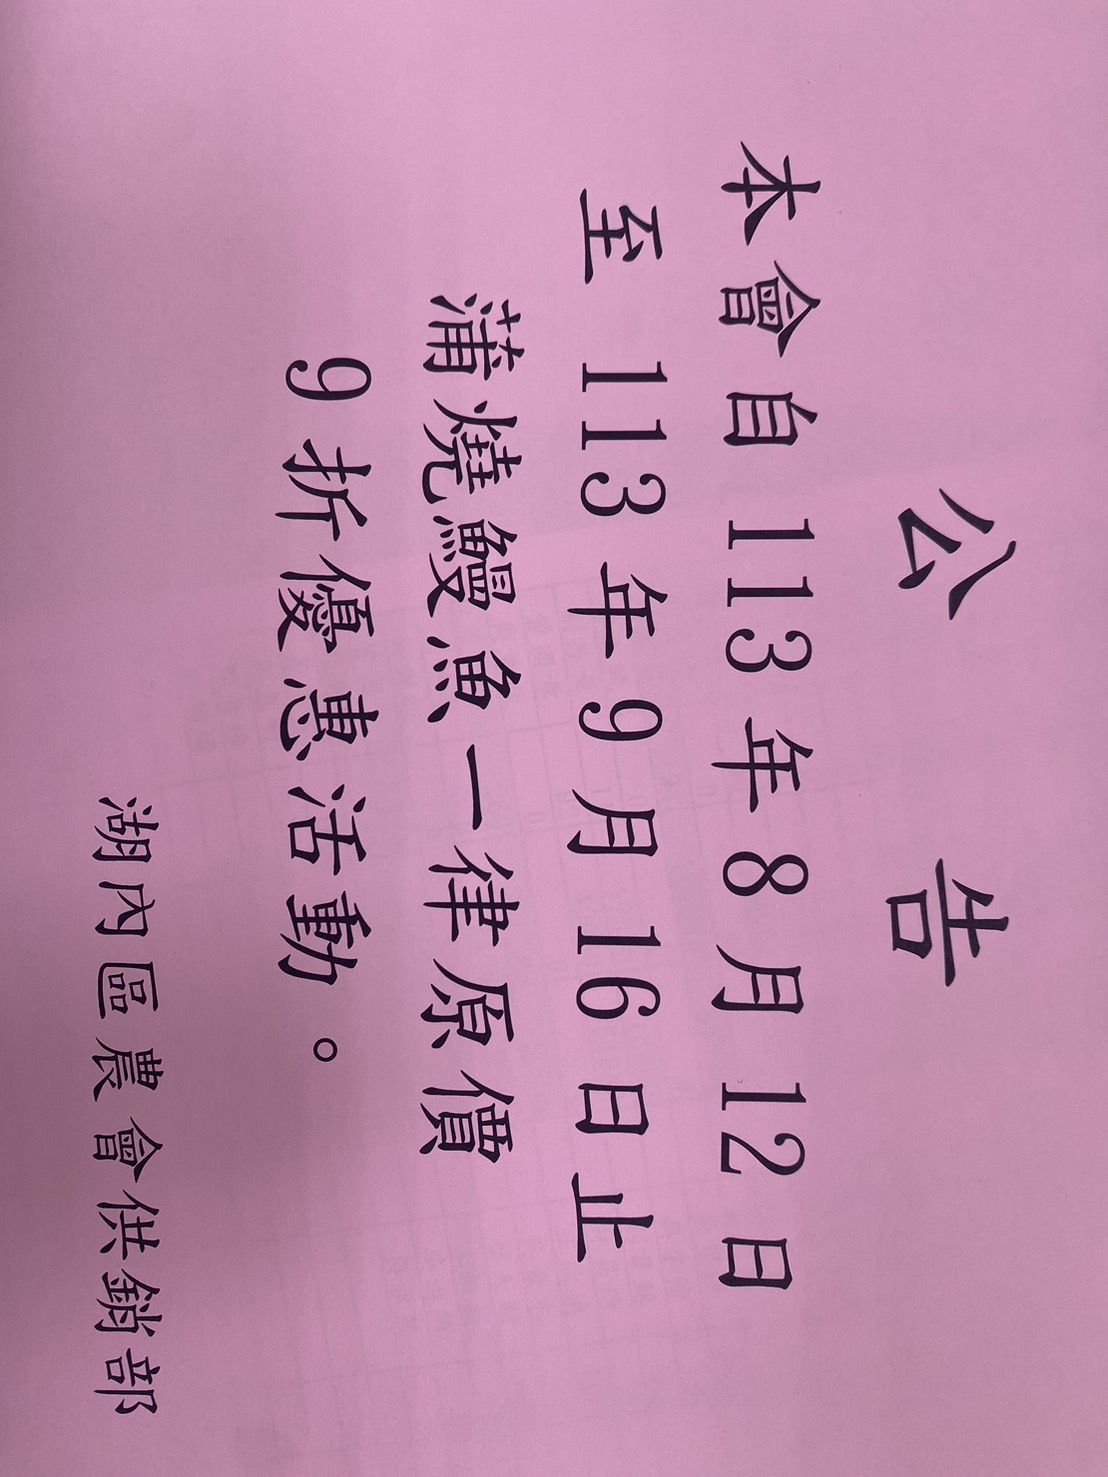 公 告
本會自 113 年 8 月 12 日
至 113 年 9 月 16 日止
蒲燒鰻魚一律原價
9 折優惠活動。
湖內區農會供銷部